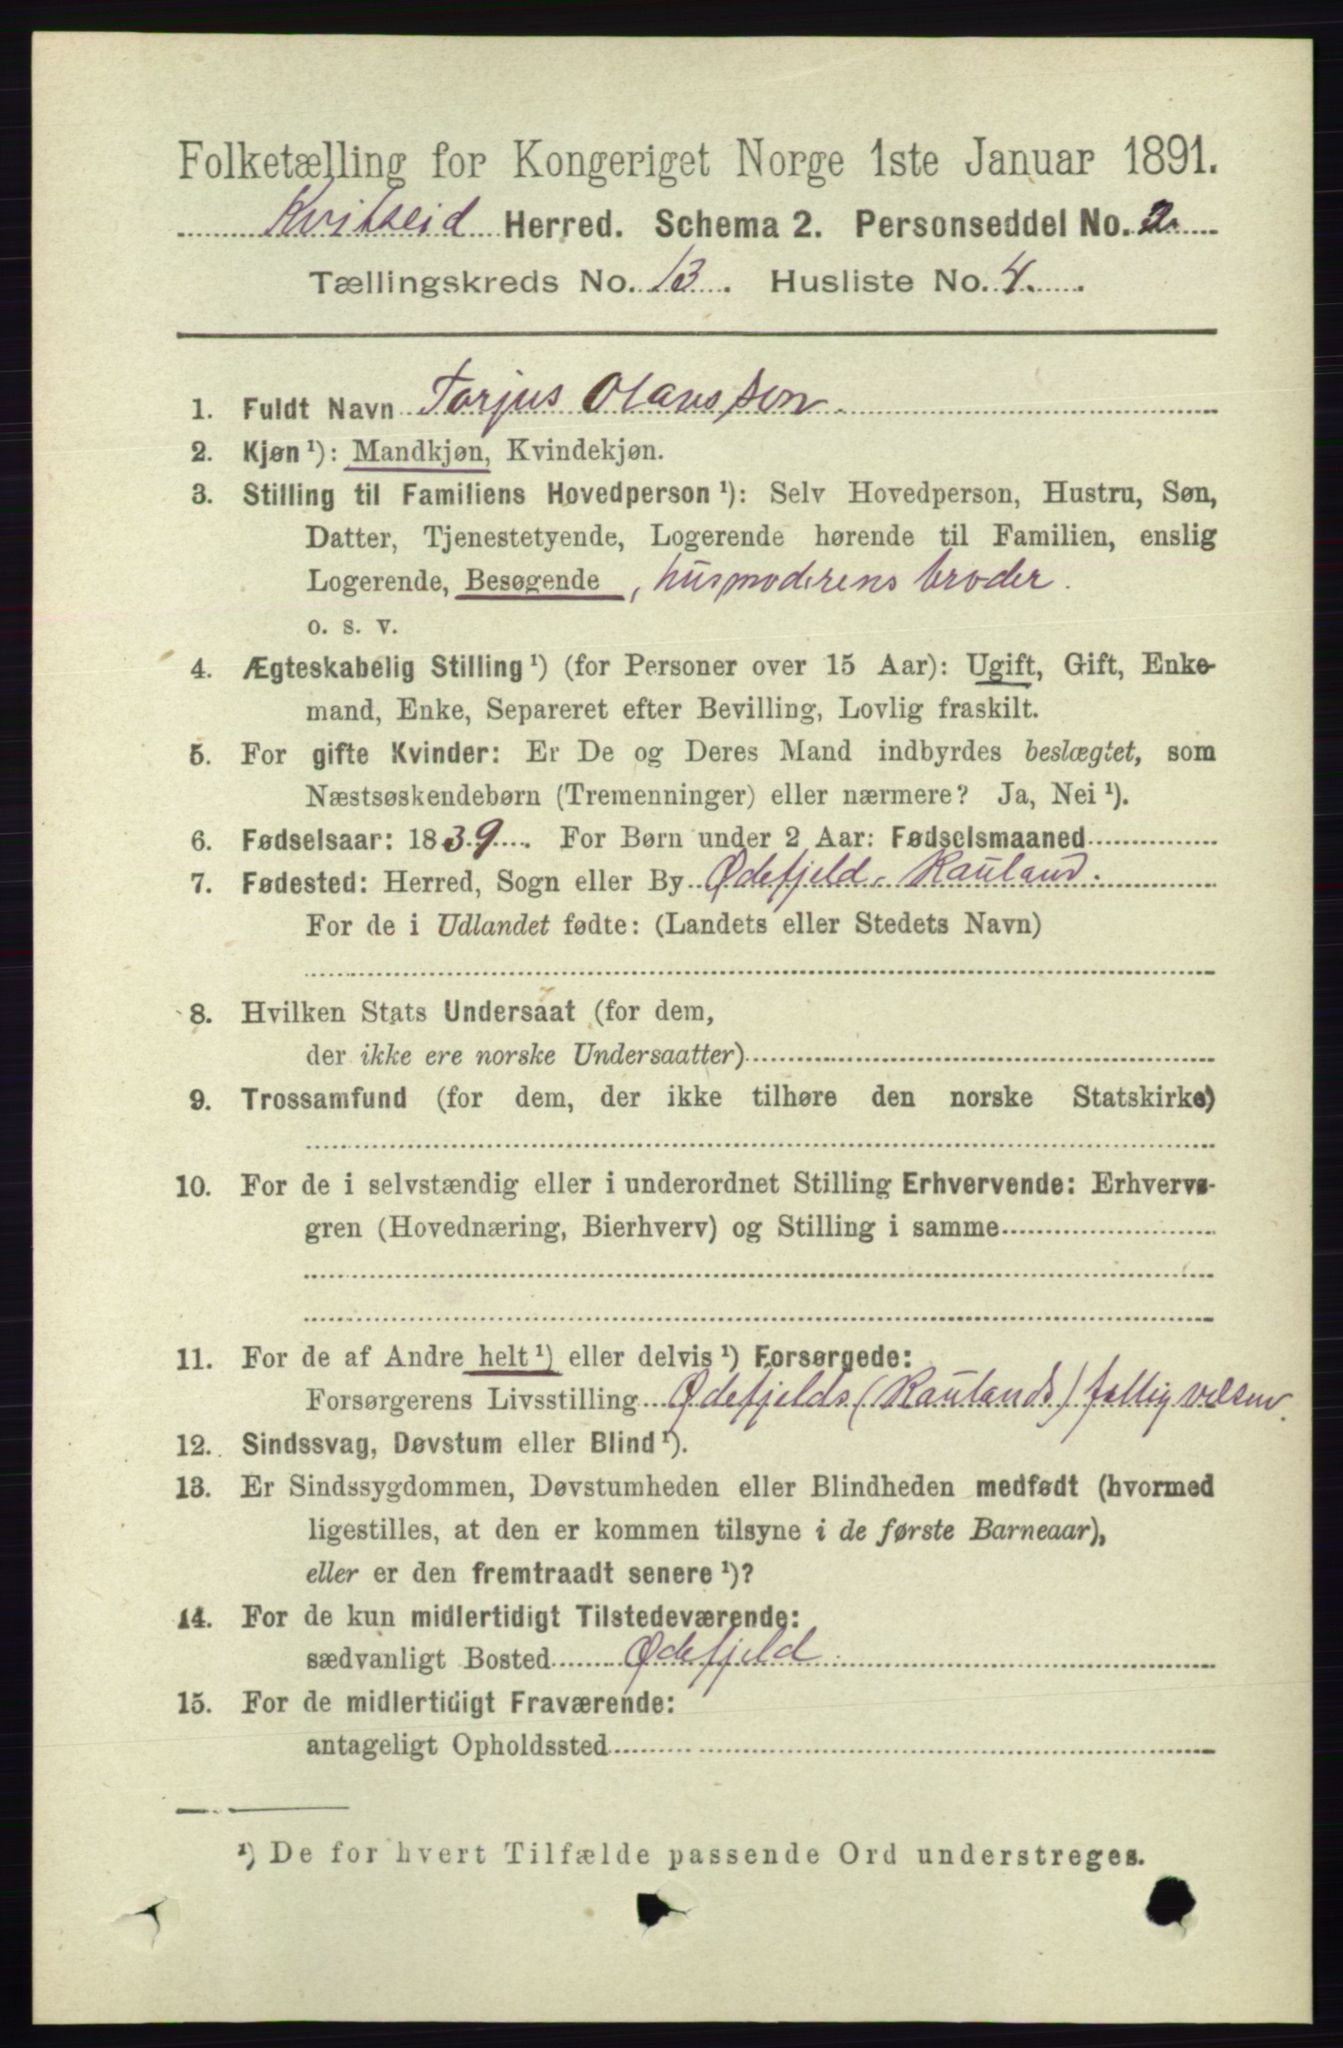 Folketælling for Kongeriget Norge 1ste Januar 1891.
Kvitseid Herred. Schema 2. Personseddel No. 2.
Tællingskreds No. 13. Husliste No. 4.
1. Fuldt Navn Torjus Olavsson.
2. Kjøn ¹): Mandkjøn, Kvindekjøn.
3. Stilling til Familiens Hovedperson ¹): Selv Hovedperson, Hustru, Søn,
Datter, Tjenestetyende, Logerende hørende til Familien, enslig
Logerende, Besøgende, husmoderens broder.
o. s. v.
4. Ægteskabelig Stilling ¹) (for Personer over 15 Aar): Ugift, Gift, Enke-
mand, Enke, Separeret efter Bevilling, Lovlig fraskilt.
5. For gifte Kvinder: Er De og Deres Mand indbyrdes beslægtet, som
Næstsøskendebørn (Tremenninger) eller nærmere? Ja, Nei ¹).
6. Fødselsaar: 1839. For Børn under 2 Aar: Fødselsmaaned
7. Fødested: Herred, Sogn eller By Ødefjeld. Rauland.
For de i Udlandet fødte: (Landets eller Stedets Navn)
8. Hvilken Stats Undersaat (for dem,
der ikke ere norske Undersaatter)
9. Trossamfund (for dem, der ikke tilhøre den norske Statskirke)
10. For de i selvstændig eller i underordnet Stilling Erhvervende: Erhvervs-
gren (Hovednæring, Bierhverv) og Stilling i samme
11. For de af Andre helt ¹) eller delvis ¹) Forsørgede:
Forsørgerens Livsstilling Ødefjelds (Raulands) fattigvæsen.
12. Sindssvag, Døvstum eller Blind ¹).
13. Er Sindssygdommen, Døvstumheden eller Blindheden medfødt (hvormed
ligestilles, at den er kommen tilsyne i de første Barneaar),
eller er den fremtraadt senere ¹)?
14. For de kun midlertidigt Tilstedeværende:
sædvanligt Bosted Ødefjeld.
15. For de midlertidigt Fraværende:
antageligt Opholdssted
¹) De for hvert Tilfælde passende Ord understreges.